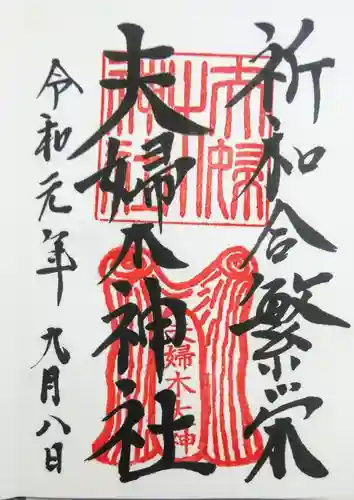 祈和合繁栄
夫婦木神社
夫婦木大神
令和元年九月八日